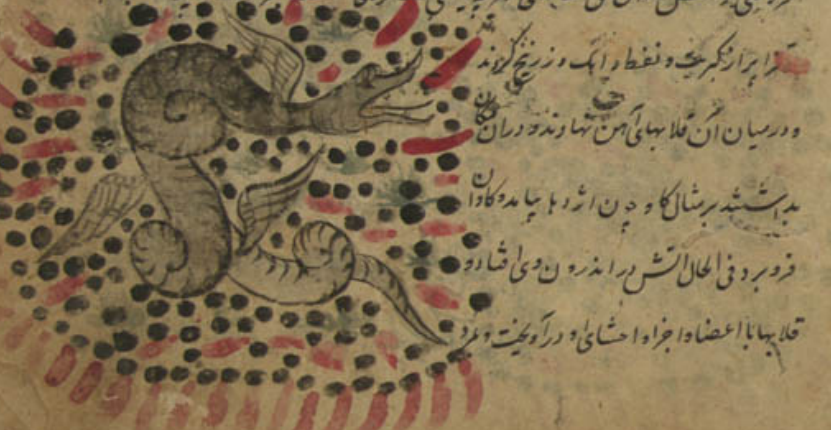 را پر از کبریت و نفط و آهک و زرنیخ کردند
و در میان آن قلابهای آهن نهادند و در آن
بداشتند بر مثال گاو چون اژدها بیامد و گاوان
فرو برد فی الحال اتش در اندرون وی افتاد و
قلابها با اعضا و اجزا و احشای او در آویخت و مرد